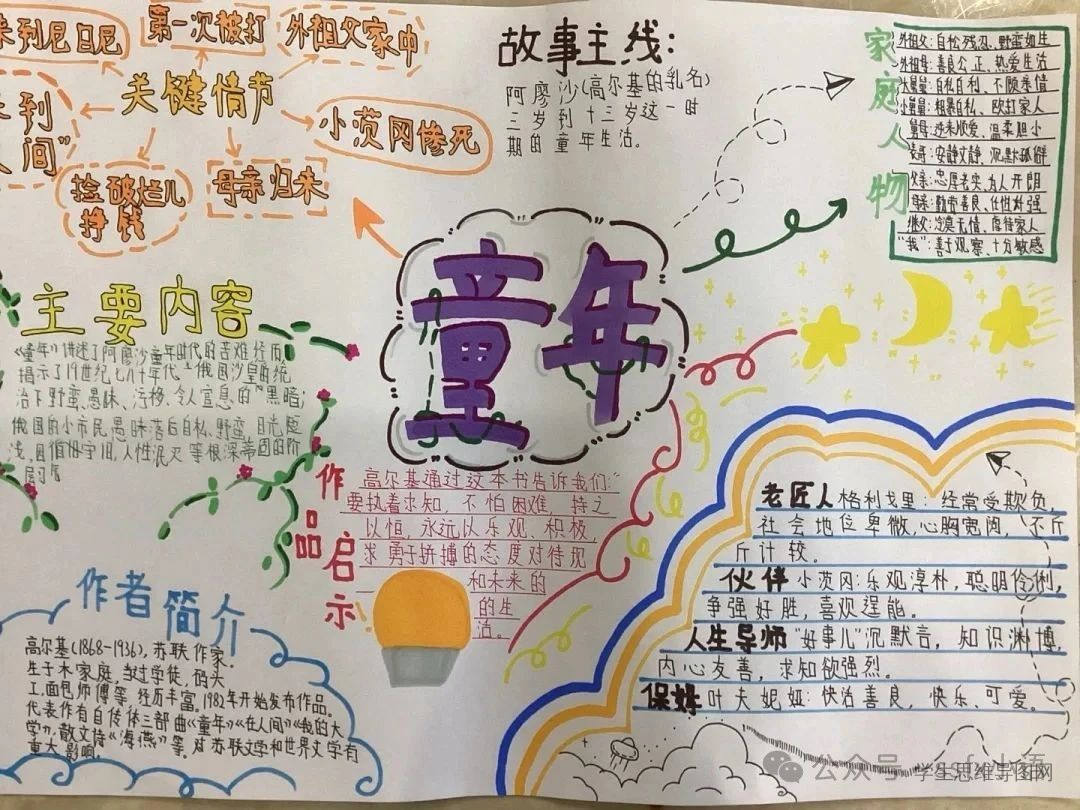 来到尼日尼
第一次被打
外祖父家中
关键情节
小茨冈惨死
来到
人间”
捡破烂儿
挣钱
母亲归来
故事主线:
阿廖沙(高尔基的乳名)
三岁到十三岁这一时
期的童年生活。
家庭人物
外祖父:自私残忍、野蛮如生
外祖母:善良公正、热爱生活
大舅舅:自私自利、不顾亲情
小舅舅:粗暴自私、殴打家人
舅母:逆来顺爱、温柔胆小
表哥:安静文静、沉默孤僻
父亲:忠厚老实、为人开朗
母亲:勤劳善良、任性好强
继父:冷漠无情、虐待家人
“我”:善于观察、十分敏感
童年
主要内容
《童年》讲述了阿廖沙童年时代的苦难经历,
揭示了19世纪七八十年代俄国沙皇的统
治下野蛮、愚昧、污秽、令人窒息的“黑暗;
俄国的小市民愚昧落后自私、野蛮、目光短
浅,因循相守旧,人性泯灭等根深蒂固的阶
层习气
作品启示
高尔基通过这本书告诉我们:“
要执着求知,不怕困难,持之
以恒,永远以乐观、积极,
求勇于拼搏的态度对待现
和未来的
的生
活。
老匠人格利戈里:经常受欺负,
社会地位卑微,心胸宽阔,不斤
斤计较。
伙伴小茨冈:乐观淳朴,聪明伶俐,
争强好胜,喜观逞能。
人生导师“好事儿”沉默言,知识渊博,
内心友善,求知欲强烈。
保姆叶夫妮娅:快治善良,快乐、可爱。
作者简介
高尔基(1868-1936),苏联作家.
生于木家庭,当过学徒,码头
工,面包师傅等,经历丰富,1982年开始发布作品。
代表作有自传体三部曲《童年》《在人间》《我的大
学》,散文诗《海燕》等.对苏联文学和世界文学有
重大影响.
公众号
学生思维导图网